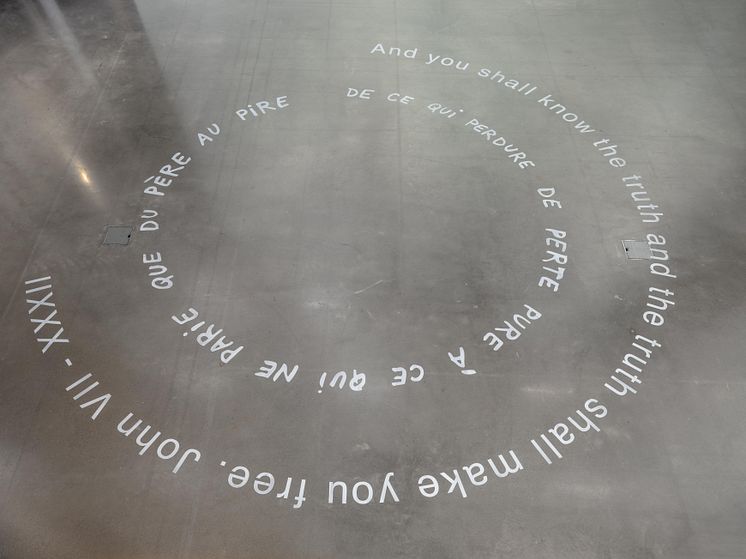 And you shall know the truth and the truth shall make you free. John VII - XXXII
DE CE QUi PERDURE DE PERTE PURE 'A CE QUi NE PARiE QUE DU PÈRE AU PiRE